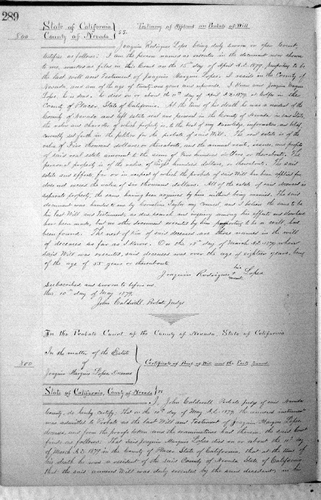 289
State of California } ss. Testimony of Applicant on Probate of Will
800 County of Nevada
Joaquin Rodrigues Lopes being duly sworn in open Court,
testifies as follows: I am the person named as executor in the document now shown
to me, marked as filed in this Court on the 16th day of April A.D. 1879, purporting to be
the last will and testament of Joaquin Marquis Lopes. I reside in the County of
Nevada, and am of the age of twenty one years and upwards. I knew Joaquin Marquis
Lopes, he is dead. He died on or about the day of March A.D. 1879 at
County of Placer State of California. At the time of his death he was a resident of the
County of Nevada and left estate real and personal in the County of Nevada in said State,
the value and character of which property is, to the best of my knowledge, information and belief
correctly set forth in the petition for the probate of said Will. The real estate is of the
value of Five thousand dollars or thereabouts, and the annual rents, issues, and profits
of said real estate amount to the sum of two hundred dollars or thereabouts. The
personal property is of the value of Eight hundred dollars, or thereabouts. The said
estate and effects, for or in respect of which the probate of said Will has been applied for
does not exceed the value of six thousand dollars. All of the estate of said deceased is
separate property, the same having been acquired by him
document was handed to me by and I believe the same to be
his last Will and Testament, as due search and inquiry among his effects and elsewhere
have been made, but no other document executed by him purporting to be a will has
been found. The next of kin of said deceased are those named in the will
of deceased as far as I know. On the 15th day of March A.D. 1879, when
said Will was executed, said deceased was over the age of eighteen years, being
of the age of 55 years or thereabouts
Joaquin Rodrigues Lopes
Subscribed and sworn to before me
this 10th day of May 1879.
John Caldwell, Probate Judge
In the Probate Court of the County of Nevada, State of California
In the matter of the Estate
800 of Certificate of Proof of Will and the Facts Found
Joaquin Marquis Lopes Deceased
State of California, County of Nevada } ss. I, John Caldwell, Probate Judge of said Nevada
County, do hereby certify, That on the 10th day of May A.D. 1879, the annexed instrument
was admitted to Probate as the last Will and Testament of Joaquin Marquis Lopes
deceased, and from the proofs taken and the examination had therein, the said Court
finds as follows: That said Joaquin Marquis Lopes died on or about the day
of March A.D. 1879 in the County of Placer, State of California, that at the time of
his death he was a resident of the said County of Nevada State of California
that the said annexed Will was duly executed by the said decedent, in his